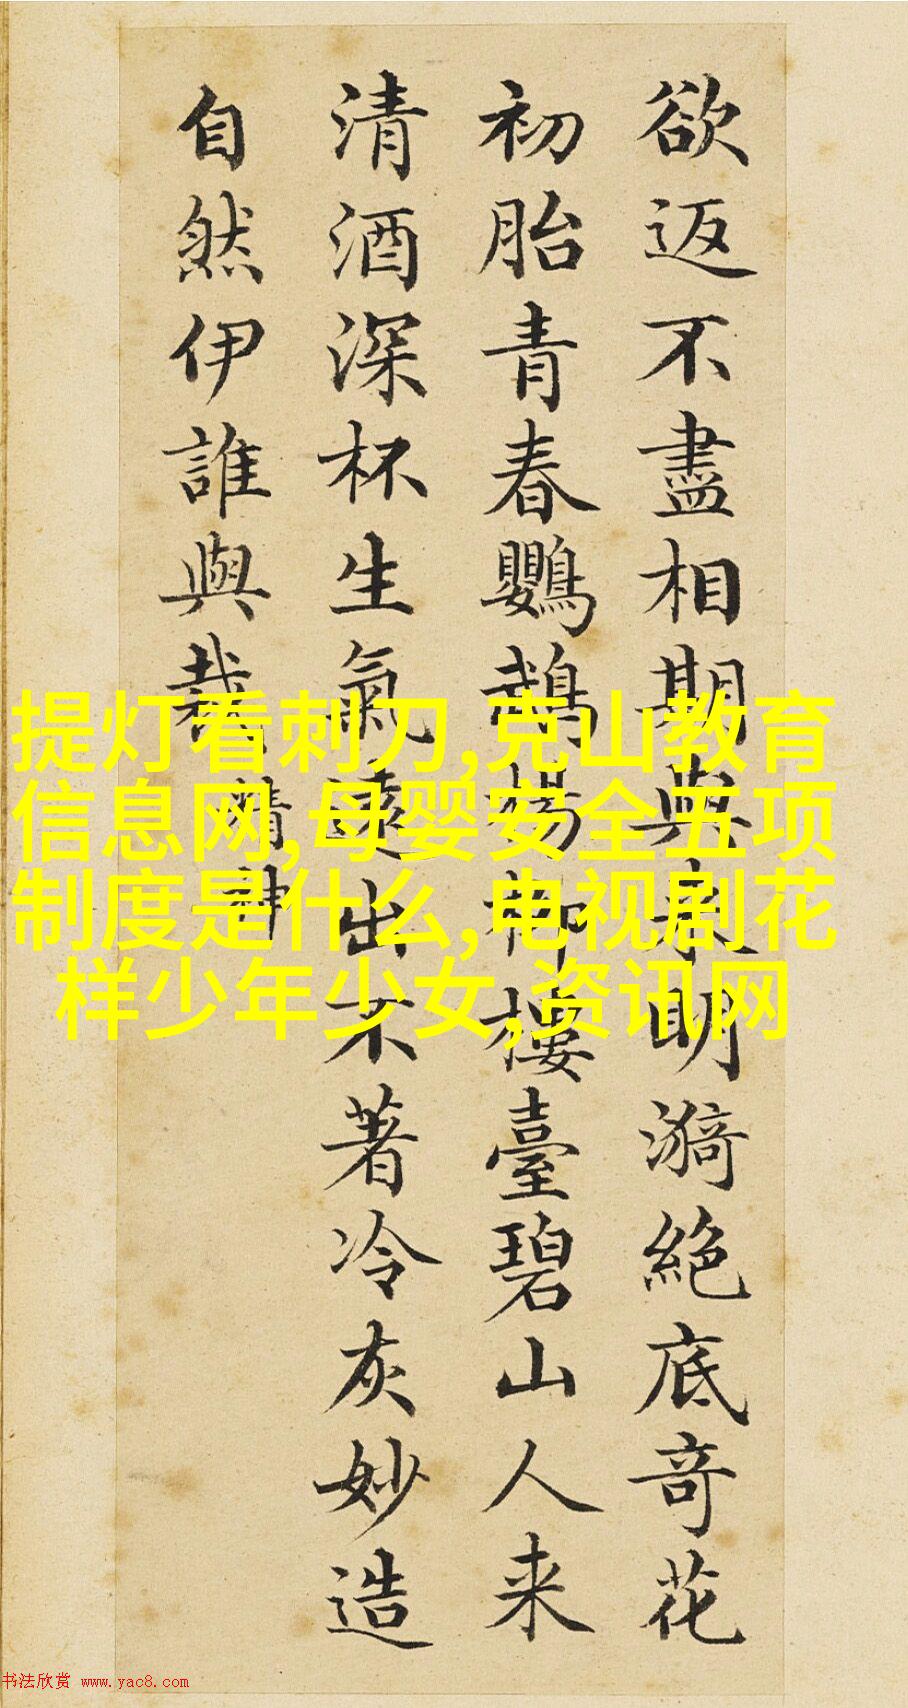 欲返不盡相期與来明漪絕底竒花
初胎青春鸚鵡楊柳樓臺碧山人来
清酒深杯生氣遠出不著冷灰妙造
自然伊誰與裁
精神
提灯看刺刀,克山教育
信息网,母婴安全五项
制度是什么,电视剧花
样少年少女,资讯网
书法欣赏 www.yac8.com